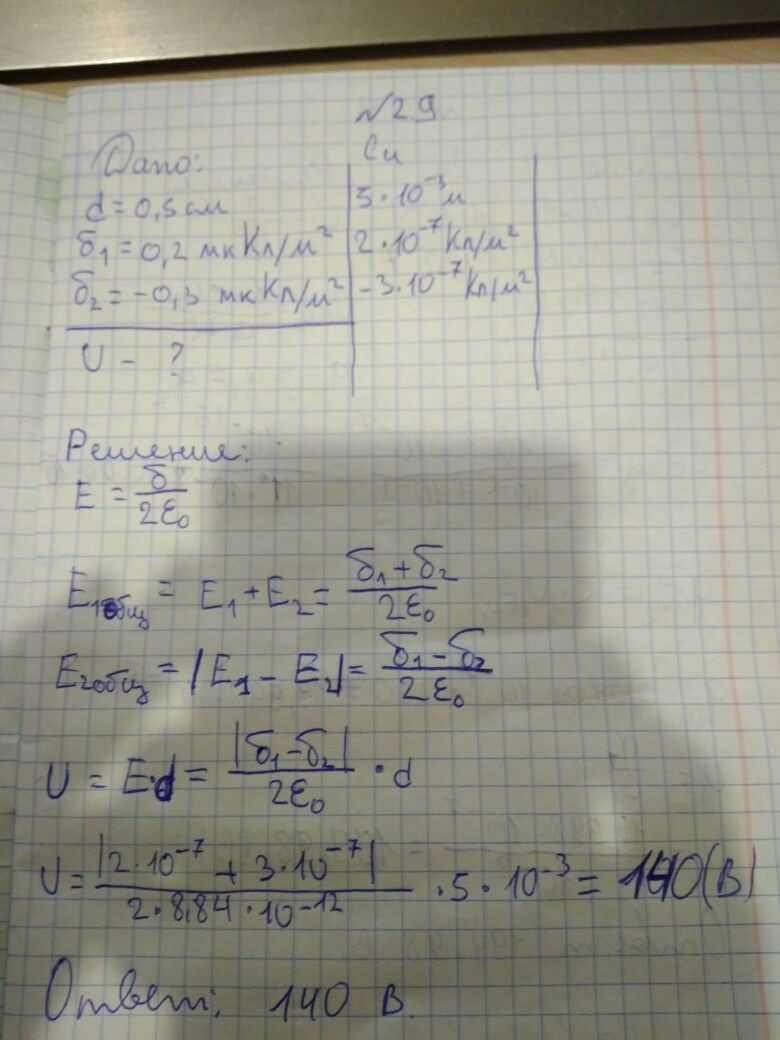 №2.9
Дано:
Си
d = 0,5 см
5·10⁻³ м
σ₁ = 0,2 мкКл/м²
2·10⁻⁷ Кл/м²
σ₂ = -0,3 мкКл/м²
-3·10⁻⁷ Кл/м²
U - ?
Решение:
E = σ / 2ε₀
E₁общ = E₁ + E₂ = (σ₁ + σ₂) / 2ε₀
E₂общ = |E₁ - E₂| = (σ₁ - σ₂) / 2ε₀
U = E·d = |σ₁ - σ₂| / 2ε₀ · d
U = |2·10⁻⁷ + 3·10⁻⁷| / 2·8,84·10⁻¹² · 5·10⁻³ = 140 (В)
Ответ: 140 В.